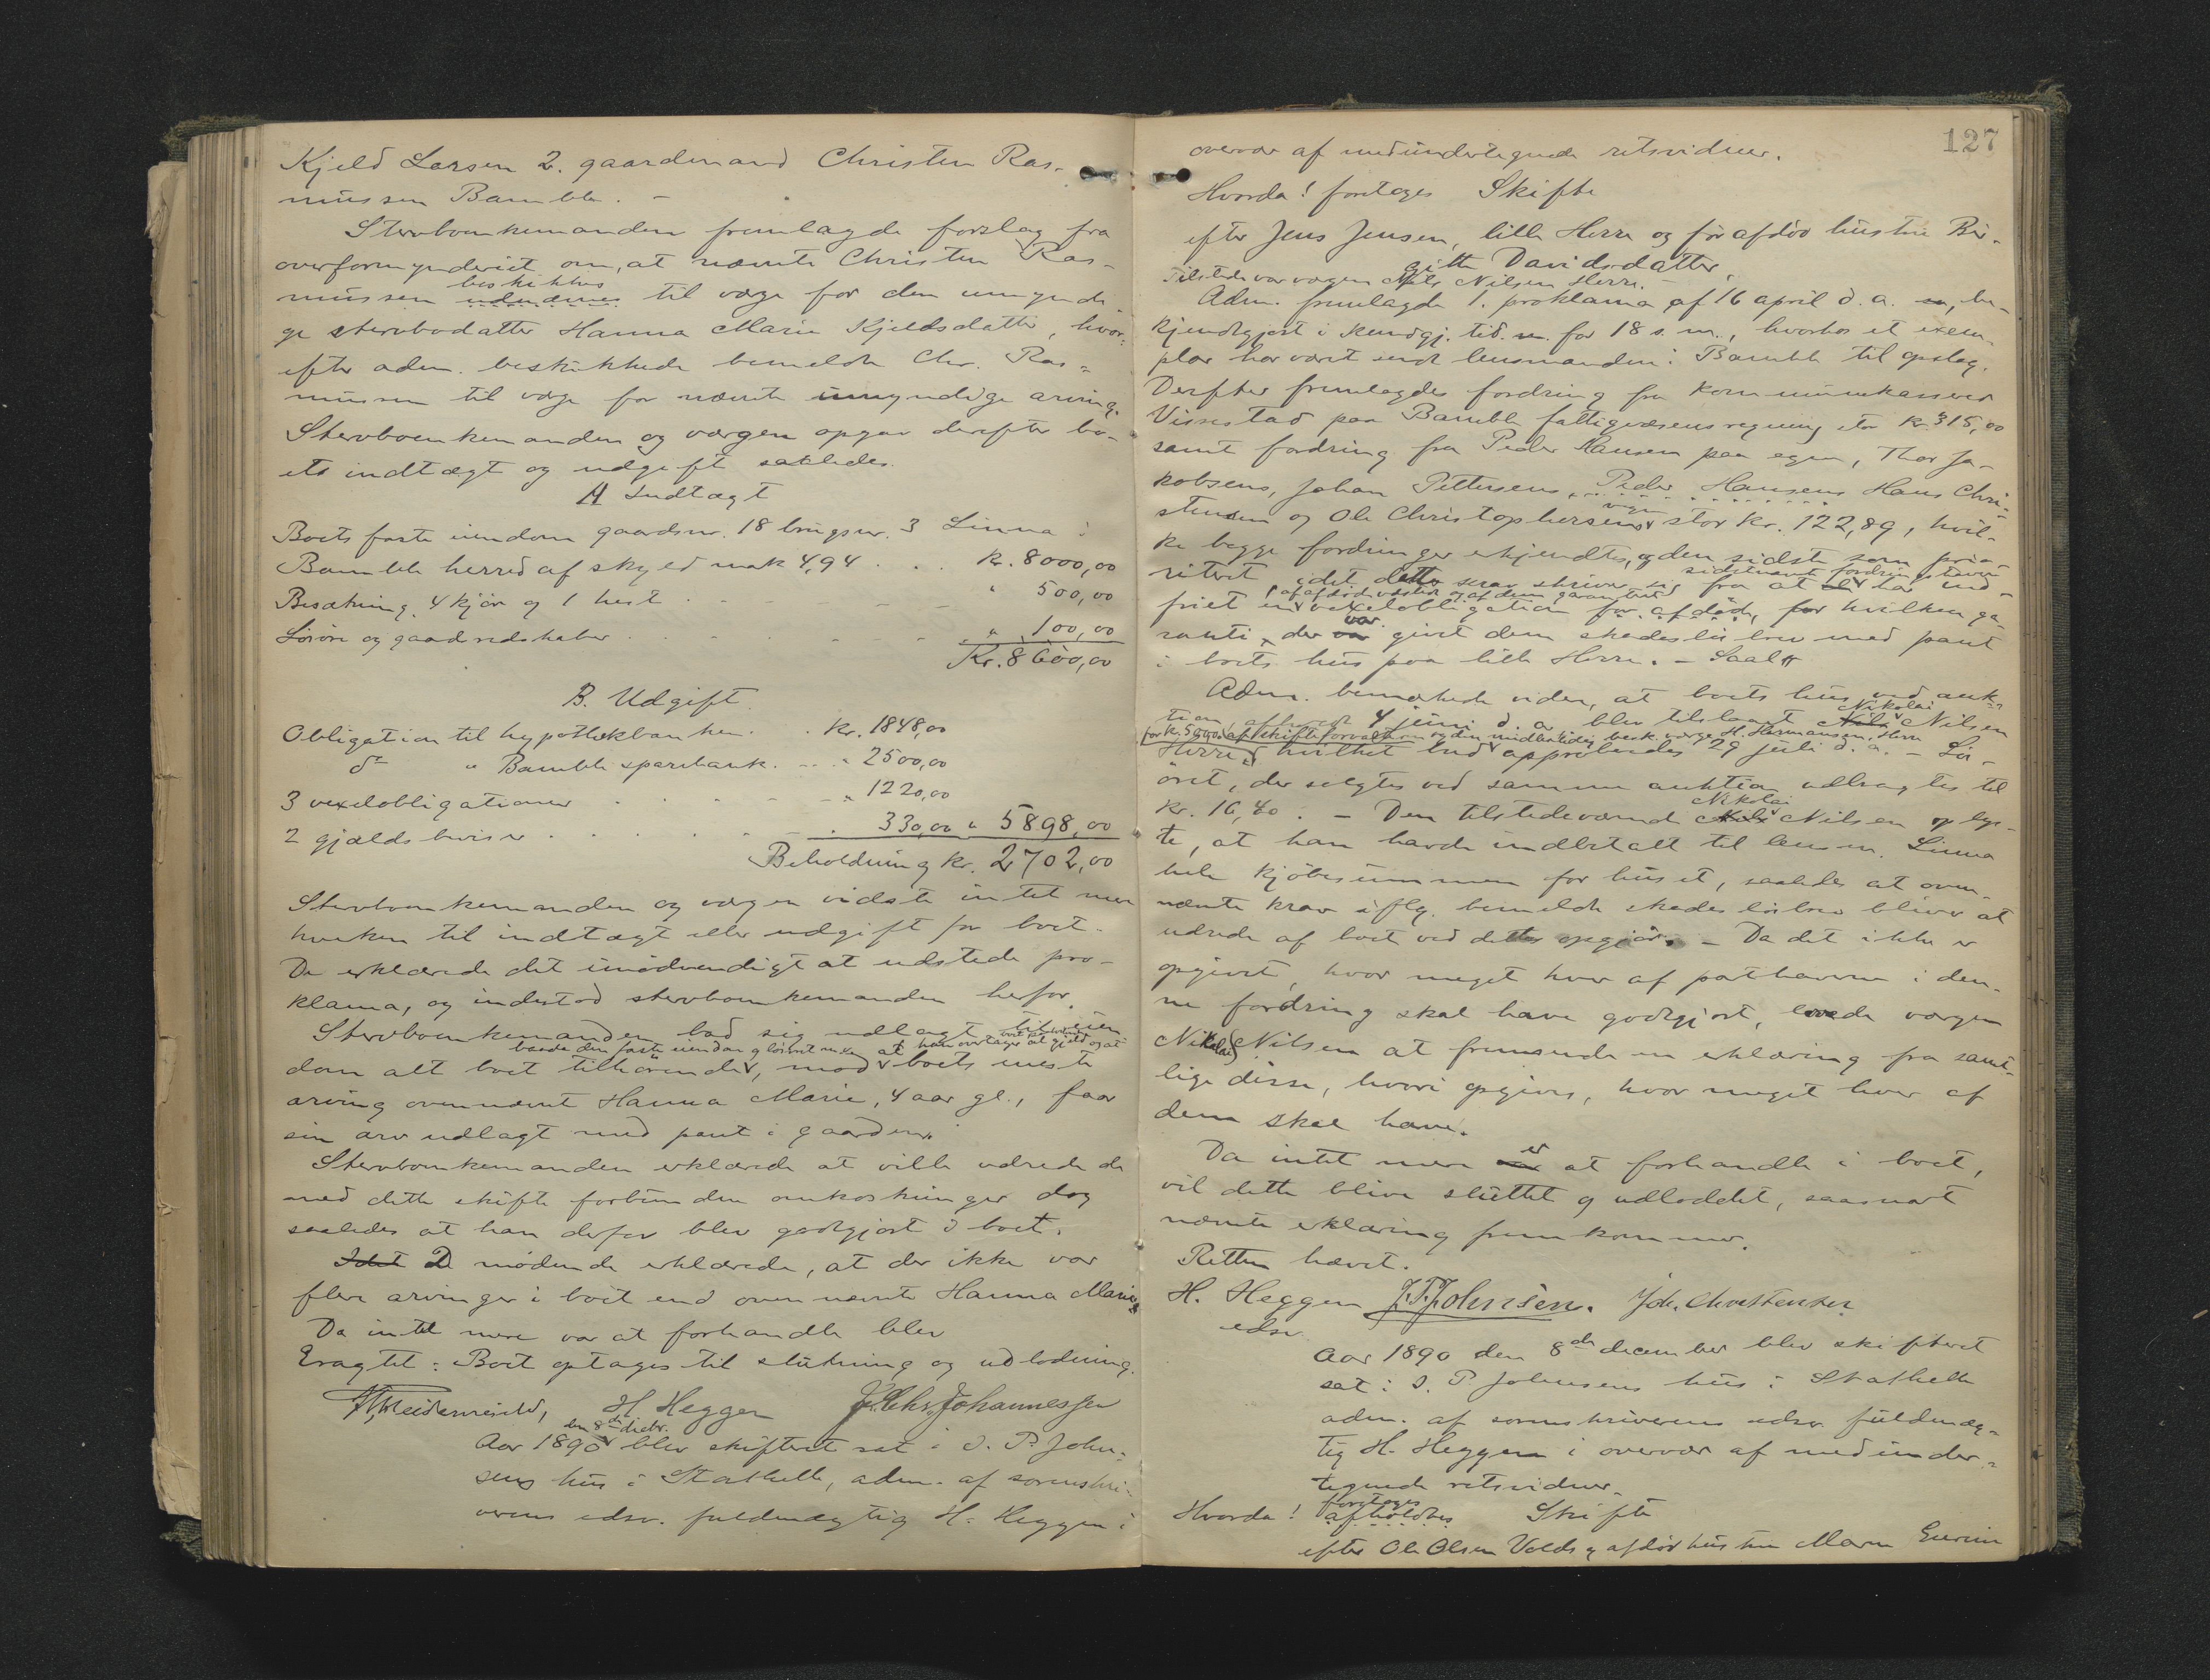 Kjeld Larsen 2. gaardmand Christen Ras-
mussen Bamble. -
Stervboenkemanden fremlagde forslag fra
overformynderiet om, at nævnte Christen Ras-
beskikkes
mussen udnævnes til værge for den umyndi-
ge stervbodatter Hanna Marie Kjeldsdatter, hvor-
efter adm. beskikkede bemeldte Chr. Ras-
mussen til værge for nævnte umyndige arving.
Stervboenkemanden og værgen opgav derefter bo-
ets indtægt og udgift saaledes.
A Indtægt
Boets faste eiendom gaardsnr. 18 brugsnr. 3 Linna i
Bamble herred af skyld mark 4,94 . . . Kr. 8000,00
Besætning, 4 kjør og 1 hest - - - " 500,00
Løsøre og gaardredskaber . . . " 100,00
Kr. 8600,00
B. Udgift.
Obligation til hypothekbanken . . Kr. 1848,00
do " Bamble sparebank . . . " 2500,00
3 vexelobligationer . . . " 1220,00
2 gjældsbeviser . . . . 330,00 " 5898,00
Beholdning Kr. 2702,00
Stervboenkemanden og værgen vidste intet mer
hverken til indtægt eller udgift for boet.
De erklærede det unødvendigt at udstede pro-
klama, og indestod stervboenkemanden herfor.
Stervboenkemanden bad sig udlagt til eien-
baade den faste eiendom og løsøret at han overtager al gjæld og at
dom alt boet tilhørende, mod boets eneste
arving ovennævnt Hanna Marie, 4 aar gl., faar
sin arv udlagt med pant i gaarden.
Stervboenkemanden erklærede at ville udrede de
med dette skifte forbundne omkostninger dog
saaledes at han derfor blev godtgjort i boet.
Idet De mødende erklærede, at der ikke var
flere arvinger i boet end ovennævnte Hanna Marie.
Da intet mere var at forhandle blev
Eragtet: Boet optages til slutning og udlodning.
H Heggen J. Chr. Johannessen
den 8de decbr.
Aar 1890 blev skifteret sat i J. P. John-
sens hus i Stathelle, adm. af sorenskri-
verens edsv. fuldmægtig H. Heggen i
127
overvær af medundertegnede retsvidner.
Hvorda! foretages Skifte
efter Jens Jensen, lille Herre og før afdøde hustru Bir-
gitte Davidsdatter.
Tilstede var værgen Nils Nilsen Herre. -
Adm. fremlagde 1. proklama af 16 april d. a. be-
kjendtgjort i Kundgj. tid. for 18 s. m., hvorhos et exem-
plar har været sendt lensmanden i Bamble til opslag.
Derefter fremlagdes fordring fra kommunekasserer
Vissestad paa Bamble fattigvæsens regning stor Kr. 315,00
samt fordring fra Peder Hansen paa egen, Thor Ja-
kobsens, Johan Pettersens, Peder Hansens Hans Chri-
stensen og Ole Christophersens vegne stor Kr. 122,89, hvil-
ke begge fordringer erkjendtes, og den sidste som pri-
sidstnævnte fordringshavere
riteret, idet dette krav skriver sig fra at de har ind-
af afdøde udstedt og af dem garanteret
friet en vexelobligation for afdøde, for hvilken ga-
var
ranti der var givet dem skadesløsbrev med pant
i boets hus paa lille Herre. -
Adm. bemærkede videre, at boets hus ved auk-
Nikolai
tion, afholdt 4 juni d. a. blev tilslaaet Nils Nilsen
for Kr. 500,00 af skifteforvalteren og den midlertidig besk. værge H. Hermansen, Herre
Herre, hvilket bud approberedes 29 juli d. a. - Løs-
øret, der solgtes ved samme auktion udbragtes til
Nikolai
Kr. 16,40. - Den tilstedeværende Nils Nilsen oplys-
te, at han havde indbetalt til lensm. Linna
hele kjøbesummen for huset, saaledes at oven-
nævnte krav iflg. bemeldte skadesløsbrev bliver at
udrede af boet ved dettes opgjør. - Da det ikke er
opgivet, hvor meget hver af panthaverne i den-
ne fordring skal have godtgjort, lovede værgen
Nikolai Nilsen at fremsende en erklæring fra samt-
lige disse, hvori opgives, hvor meget hver af
dem skal have.
er
Da intet mere var at forhandle i boet,
vil dette blive sluttet og udloddet, saasnart
nævnte erklæring fremkommer.
Retten hævet.
H. Heggen J. P. Johnsen. Joh. Christensen
edsv.
Aar 1890 den 8de december blev skifteret
sat i J. P. Johnsens hus i Stathelle
adm. af sorenskriverens edsv. fuldmæg-
tig H. Heggen i overvær af medunder-
tegnede retsvidner.
foretages
Hvorda! afholdtes Skifte
efter Ole Olsen Valds og afdøde hustru Maren